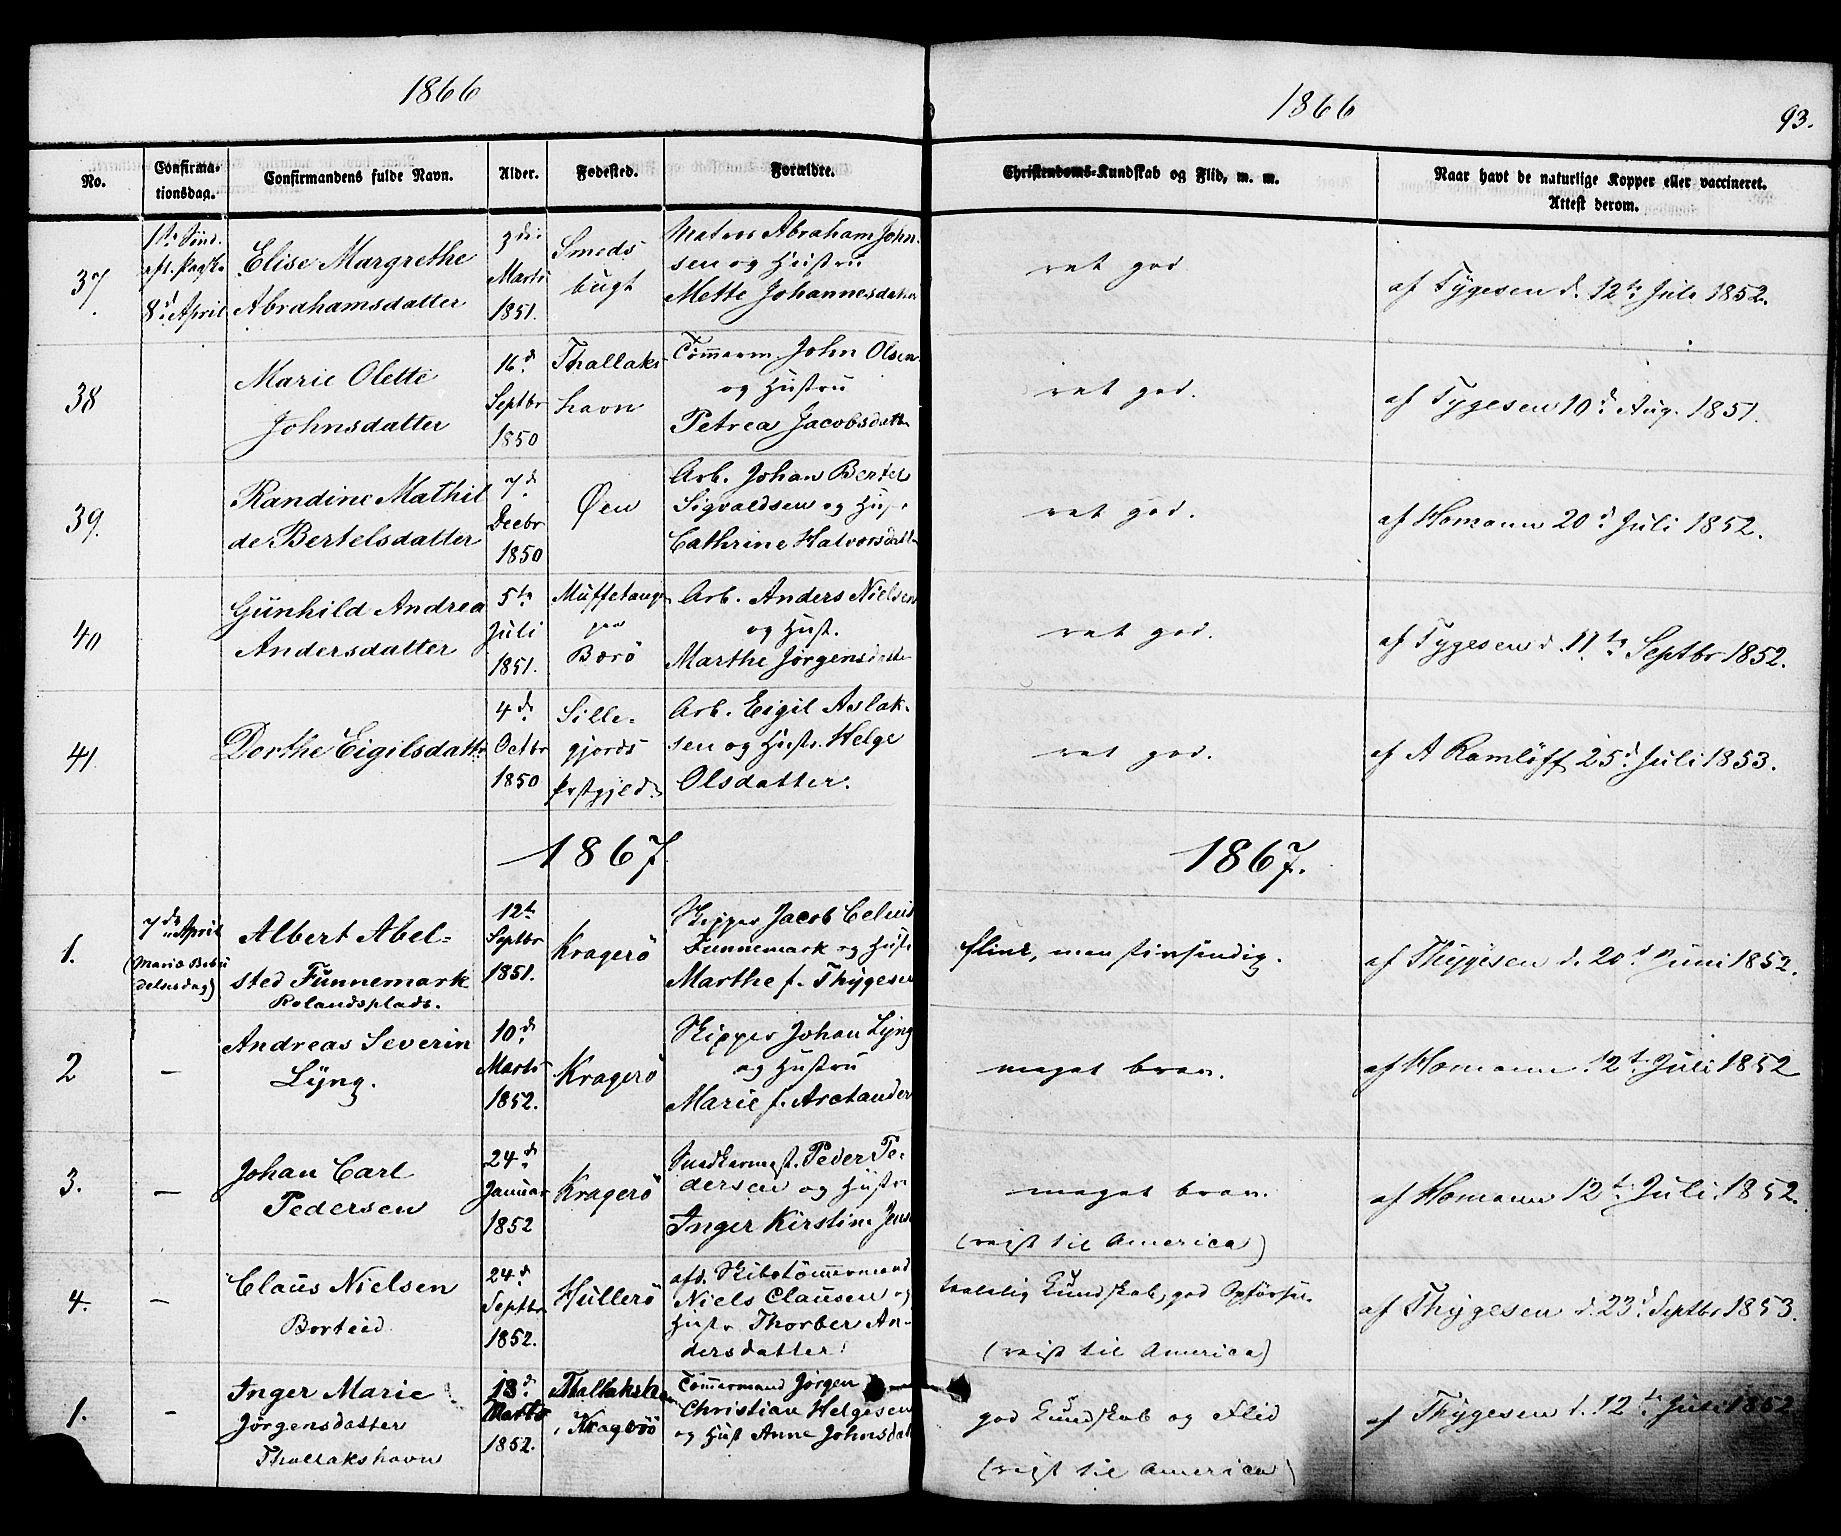 1866
1866
93.
No.
Confirma-
tionsdag.
Confirmandens fulde Navn.
Alder.
Fødested.
Forældre.
Christendoms-Kundskab og Flid, m. m.
Naar havt de naturlige Kopper eller vaccineret.
Attest derom.
37
1ste Sønd.
eft. Paaske
8d April
Elise Margrethe
Abrahamsdatter
3die
Marts
1851.
Smeds
bugt
Matros Abraham John-
sen og Hustru
Mette Johannesdatter
ret god
af Tygesen d. 12te Juli 1852.
38
Marie Olette
Johnsdatter
16d
Septbr
1850
Thallaks
havn
Tömerm. John Olsen
og Hustru
Petrea Jacobsdatt
ret god.
af Tygesen 10d Aug. 1851.
39.
Randine Mathil
de Bertelsdatter
7d
Decbr
1850
Øen
Arb. Johan Bertel
Sigvaldsen og Hust
Cathrine Halvorsdatt
ret god.
af Homann 20d Juli 1852.
40
Gunhild Andrea
Andersdatter
5te
Juli
1851.
Muffetangen
paa
Berö
Arb. Anders Nielsen
og Hust.
Marthe Jörgensdatte
ret god.
af Tygesen d. 11te Septbr 1852.
41
Dorthe Eigilsdattr
4de
Octbr
1850
Sille-
gjords
Prstgjeld
Arb. Eigil Aslak-
sen og Hustr. Helge
Olsdatter.
ret god.
af A Ramlöff 25d Juli 1853.
1867.
1867.
1.
7de April
(Mariæ Bebu
delsesdag)
Albert Abel-
sted Funnemark
Rolandsplads.
12te
Septbr
1851.
Kragerö
Skipper Jacob Celius
Funnemark og Hustr
Marthe f. Thygesen
flink, men tivsindig.
af Thygesen d. 20d Juni 1852.
2
–
Andreas Severin
Lyng.
10d
Marts
1852.
Kragerö
Skipper Johan Lyng
og Hustru
Marie f. Arctander
meget brav.
af Homann 12te Juli 1852
3.
–
Johan Carl
Pedersen
24d
Januar
1852
Kragerö
Snedkermest. Peder Pe-
dersen og Hustr
Inger Kirstine Jens
meget brav.
(reist til America)
af Homann 12te Juli 1852.
4.
–
Claus Nielsen
Borteid
24d
Septbr
1852.
Hullerö
afd. Skibstömmermand
Niels Clausen og
Hustr Thorber An-
dersdatter.
taalelig Kundskab, god Opförsel.
(reist til America)
af Thygesen d. 23d Septbr 1853.
1.
–
Inger Marie
Jörgensdatter
Thallakshavn
13d
Marts
1852.
Thallaksha
i Kragerö
Tömmermand Jörgen
Christian Helgesen
og Hust Anne Johnsdatt
god Kundskab og Flid
(reist til America)
af Thygesen d. 12te Juli 1852